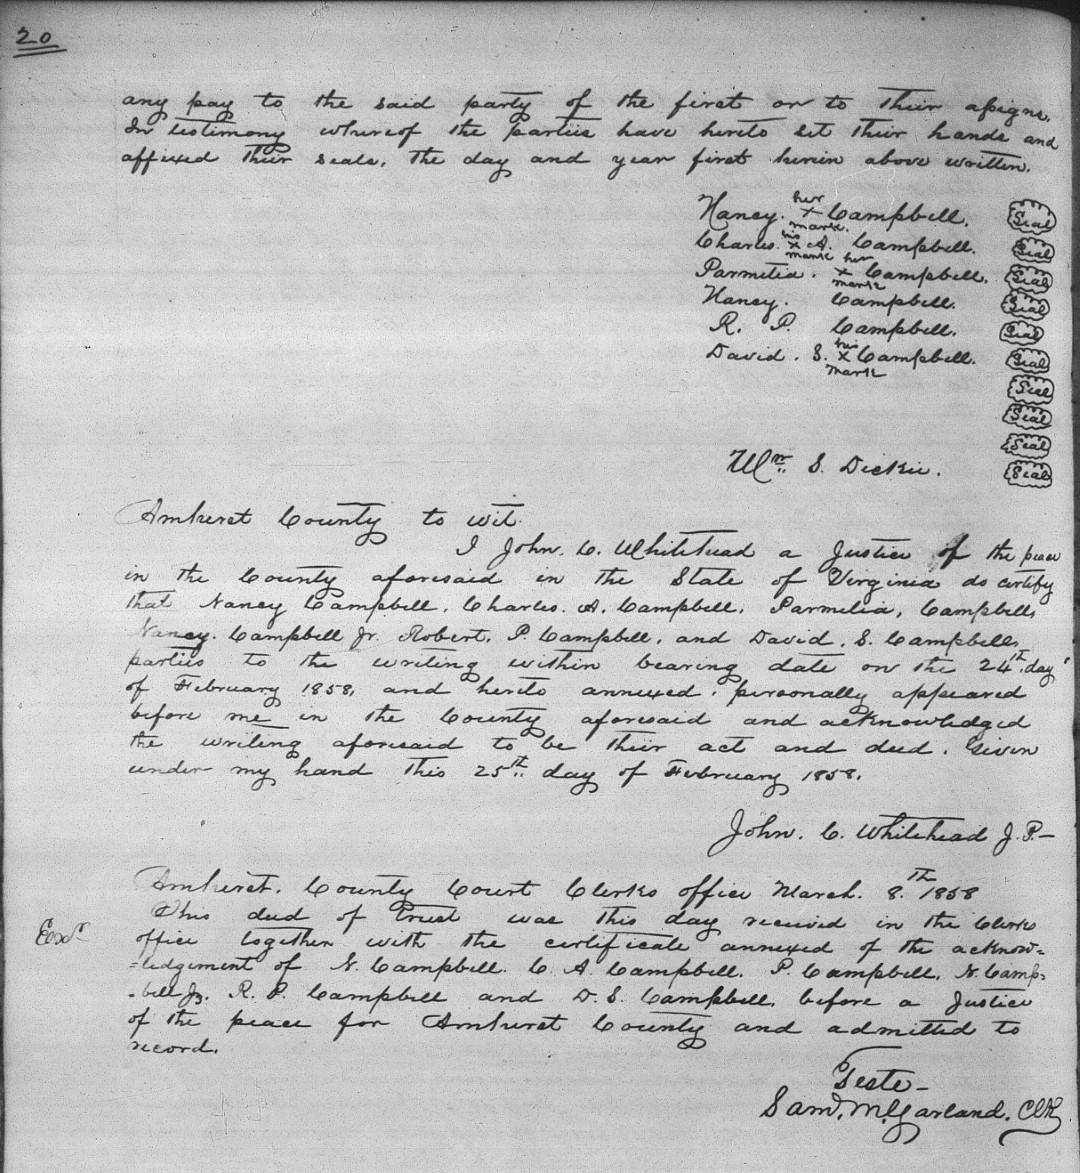 20
any pay to the said party of the first or to their assigns.
In testimony whereof the parties have hereto set their hands and
affixed their seals, the day and year first herein above written.
Nancy. her x mark. Campbell. Seal
Charles. his x mark A. Campbell. Seal
Parmelia. her x mark Campbell. Seal
Nancy. Campbell. Seal
R. P. Campbell. Seal
David. S. his x mark Campbell. Seal
Seal
Seal
Seal
Wm. S. Dickie. Seal
Amherst County to wit.
I John. C. Whitehead a Justice of the peace
in the County aforesaid in the State of Virginia do certify
that Nancy Campbell, Charles. A. Campbell, Parmelia, Campbell,
Nancy. Campbell Jr. Robert. P. Campbell, and David. S. Campbell,
parties to the writing within bearing date on the 24th day
of February 1858, and hereto annexed, personally appeared
before me in the County aforesaid and acknowledged
the writing aforesaid to be their act and deed. Given
under my hand this 25th day of February 1858.
John. C. Whitehead J. P.—
Amherst. County Court Clerks office March. 8.th 1858
This deed of trust was this day received in the Clerks
Exd.
office together with the certificate annexed of the acknow=
=ledgement of N. Campbell. C. A. Campbell. P. Campbell, N. Camp=
-bell Jr. R. P. Campbell and D. S. Campbell, before a Justice
of the peace for Amherst County and admitted to
record.
Teste—
Saml. M. Garland. Clk